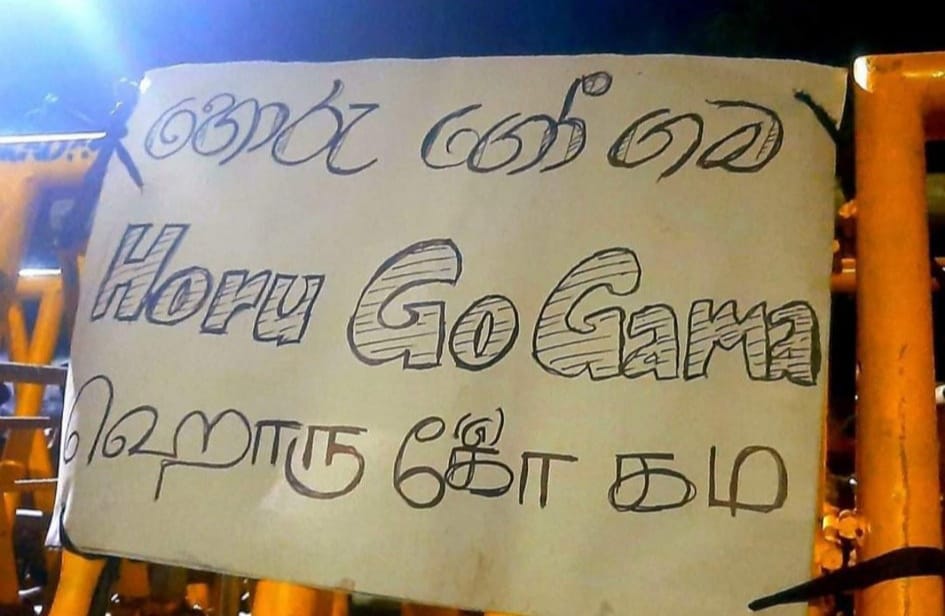 හොරු ගෝ ගම
Horu Go Gama
ஹொரு (g)கோ கம